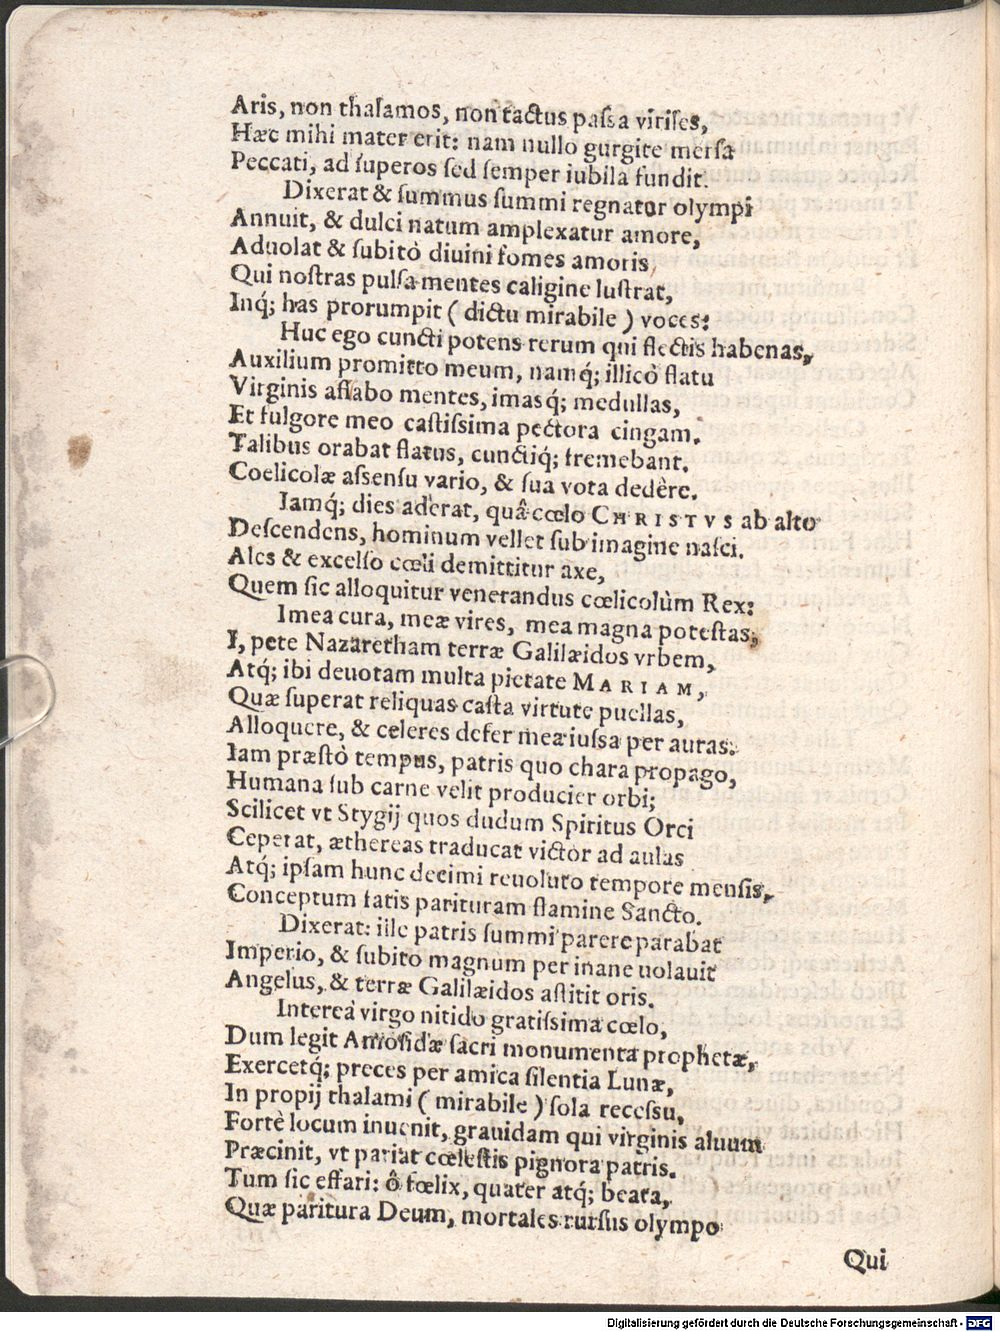 Aris, non thalamos, non tactus paſsa viriles,
Hæc mihi mater erit: nam nullo gurgite merſa
Peccati, ad ſuperos ſed ſemper iubila fundit.
Dixerat & ſummus ſummi regnator olympi
Annuit, & dulci natum amplexatur amore,
Aduolat & ſubitò diuini fomes amoris,
Qui noſtras pulſa mentes caligine luſtrat,
Inq́; has prorumpit ( dictu mirabile ) voces:
Huc ego cuncti potens rerum qui flectis habenas,
Auxilium promitto meum, namq́; illicò flatu
Virginis afflabo mentes, imasq́; medullas,
Et fulgore meo caſtiſsima pectora cingam.
Talibus orabat flatus, cunctiq́; fremebant.
Coelicolæ aſsenſu vario, & ſua vota dedêre.
Iamq́; dies adêrat, quâ cœlo CHRISTVS ab alto
Deſcendens, hominum vellet ſub imagine naſci.
Ales & excelſo cœli demittitur axe,
Quem ſic alloquitur venerandus cœlicolùm Rex:
I mea cura, meæ vires, mea magna poteſtas,
I, pete Nazaretham terræ Galilæidos vrbem,
Atq́; ibi deuotam multa pietate MARIAM,
Quæ ſuperat reliquas caſta virtute puellas,
Alloquere, & celeres defer mea iuſsa per auras.
Iam præſtò tempus, patris quo chara propago,
Humana ſub carne velit producier orbi;
Scilicet vt Stygij quos dudum Spiritus Orci
Ceperat, æthereas traducat victor ad aulas
Atq́; ipſam hunc decimi reuoluto tempore menſis,
Conceptum fatis parituram flamine Sancto.
Dixerat: ille patris ſummi parere parabat
Imperio, & ſubitò magnum per inane uolauit
Angelus, & terræ Galilæidos aſtitit oris.
Interea virgo nitido gratiſsima cœlo,
Dum legit Amoſidæ ſacri monumenta prophetæ,
Exercetq́; preces per amica ſilentia Lunæ,
In propij thalami ( mirabile ) ſola receſsu,
Fortè locum inuenit, grauidam qui virginis aluum
Præcinit, vt pariat cœleſtis pignora patris.
Tum ſic effari: ô fœlix, quater atq́; beata,
Quæ paritura Deum, mortales rurſus olympo
Qui
Digitalisierung gefördert durch die Deutsche Forschungsgemeinschaft - DFG